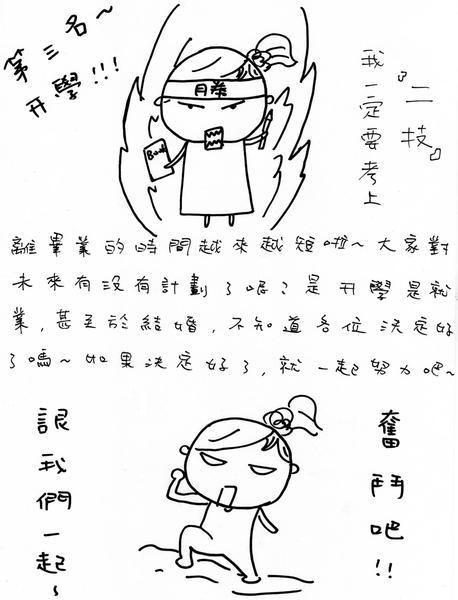 第三名~
升學!!!
勝
Book
我一定要考上
『二技』
離畢業的時間越來越短啦~大家對
未來有沒有計劃了呢?是升學是就
業,甚至於結婚,不知道各位決定好
了嗎~如果決定好了,就一起努力吧~
誏我們一起~
奮鬥吧!!